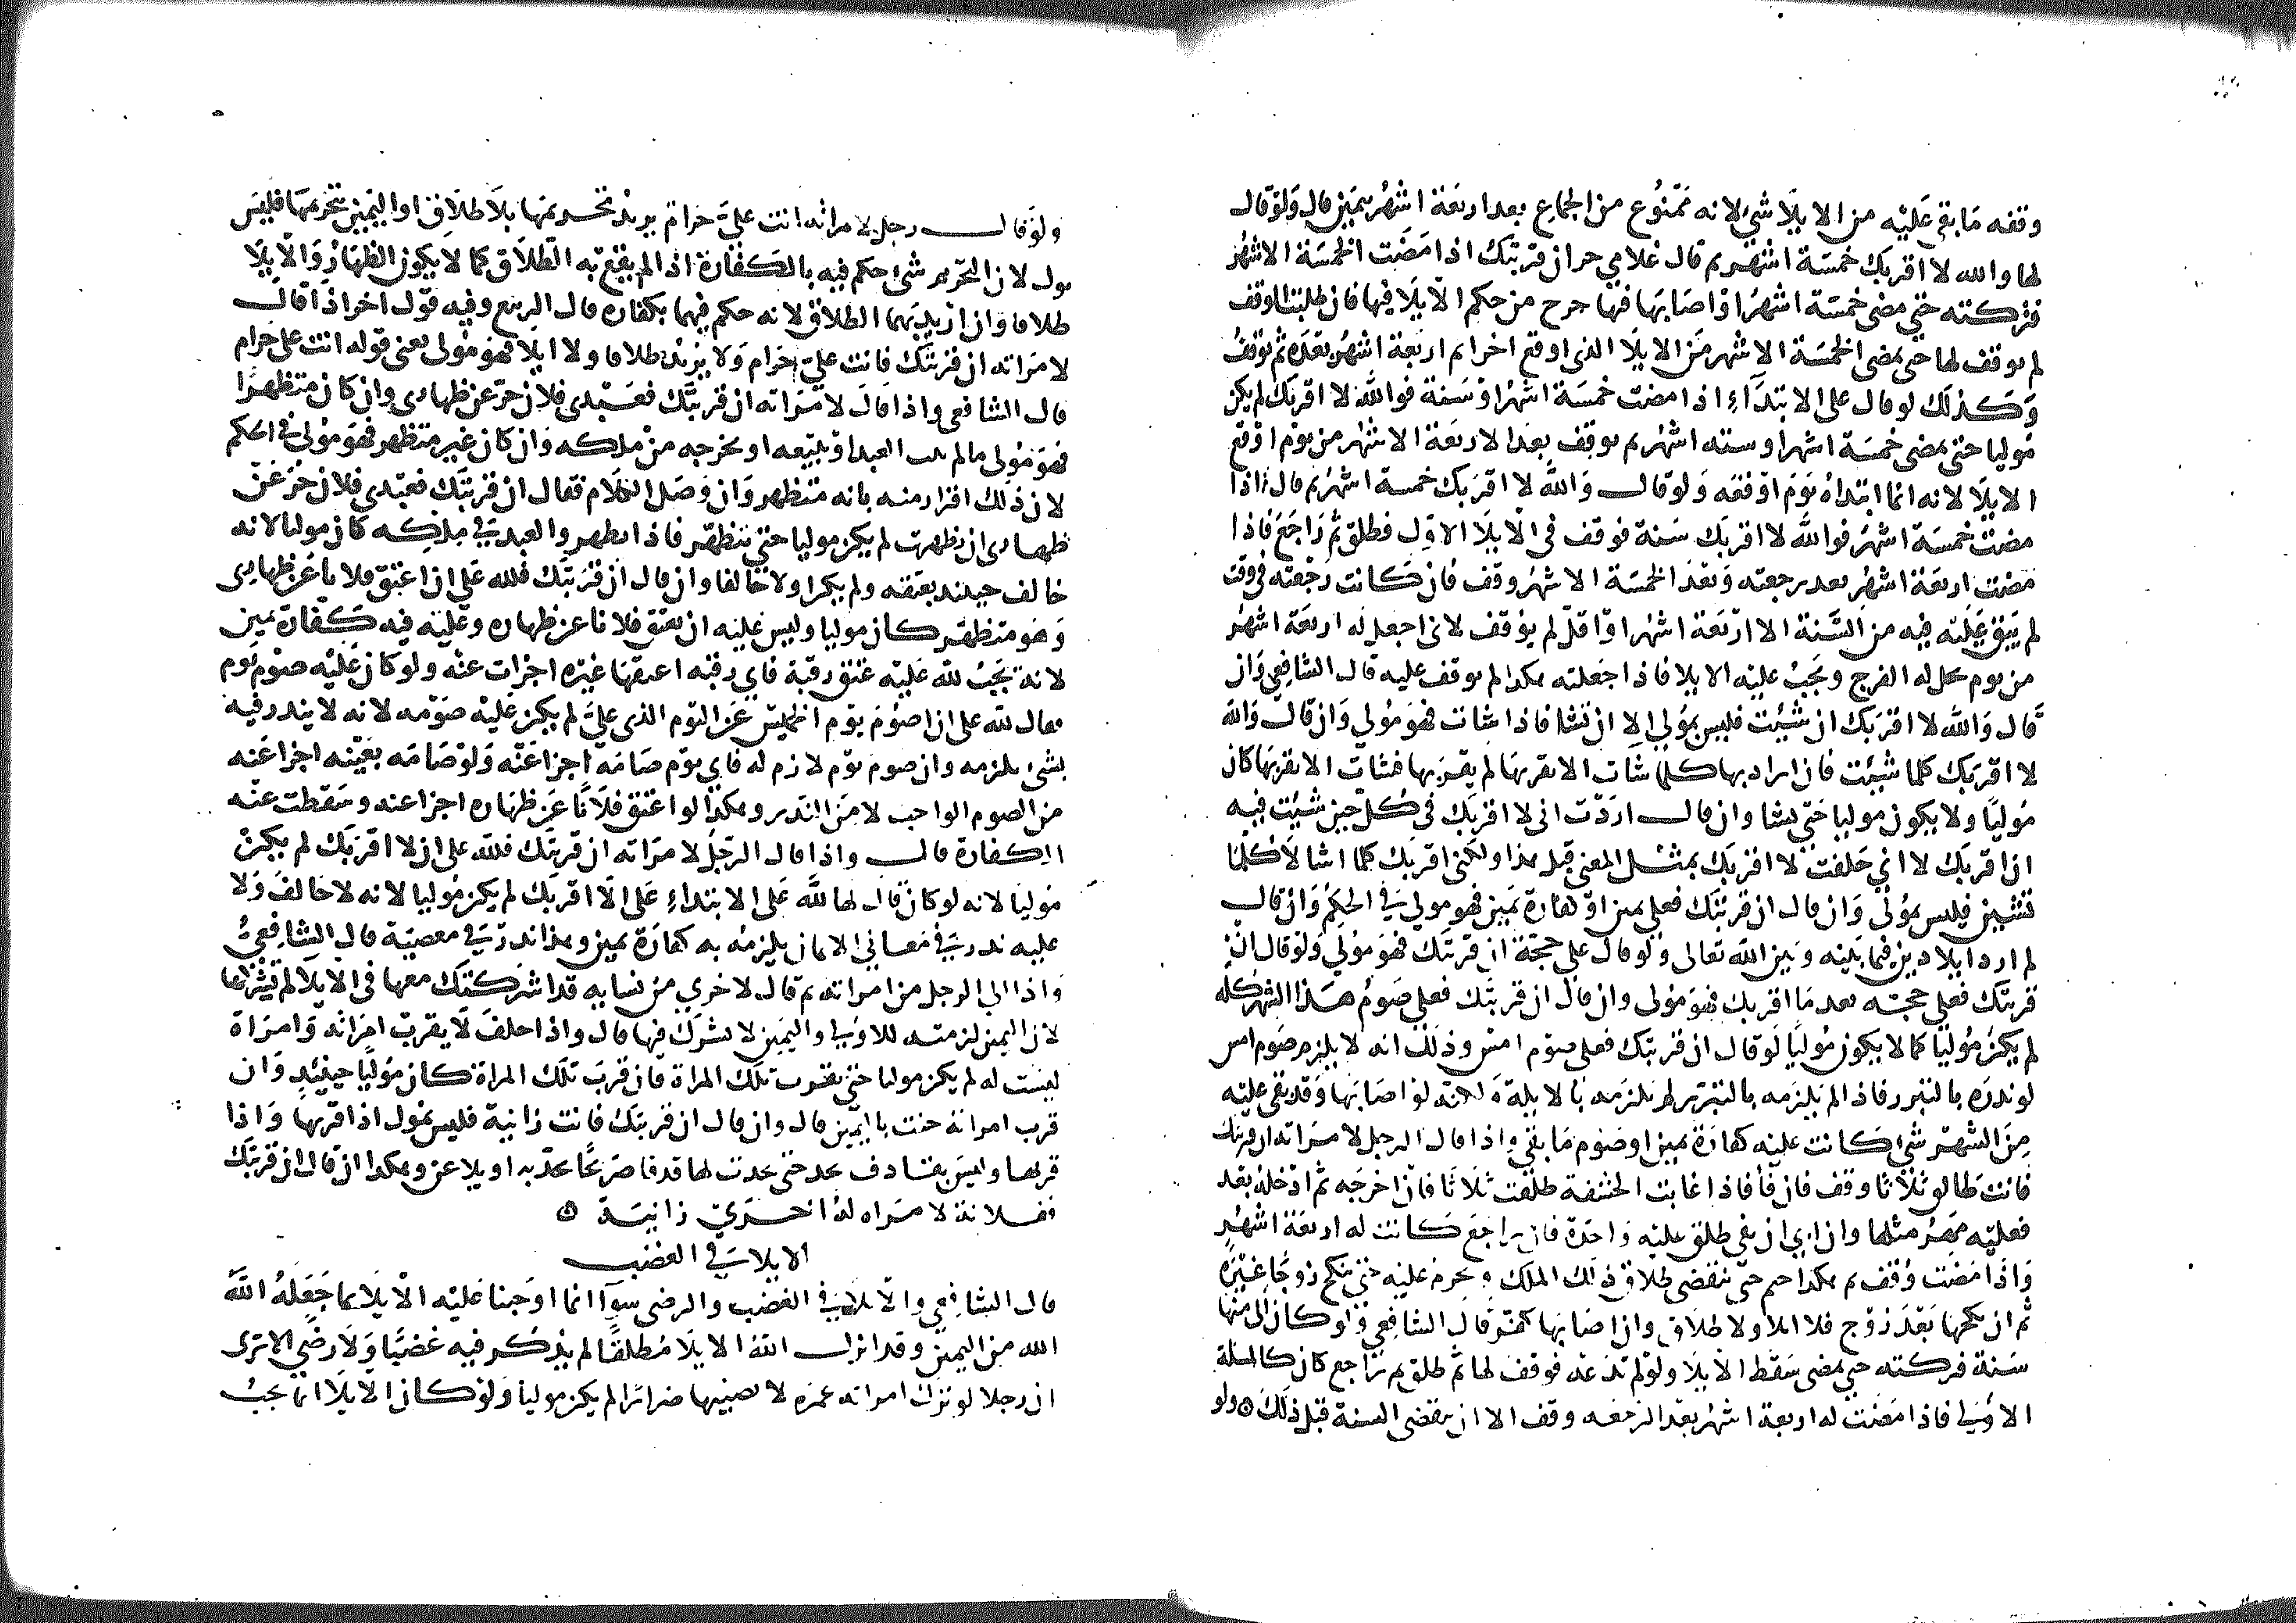 وقفه ما بقي عليه من الايلا شي لانه ممنوع من الجماع بعد اربعة اشهر بيمين قال ولو قال
لها والله لا اقربك خمسة اشهر ثم قال غلامي حر ان قربتك اذا مضت الخمسة الاشهر
فتركته حتى مضى خمسة اشهر او اصابها فيها خرج من حكم الايلا فيها فان طلبت الوقف
لم يوقف لها حتى تمضي الخمسة الاشهر من الايلا الذي اوقع اخرا ثم اربعة اشهر بعده ثم يوقف
وكذلك لو قال على الابتداء اذا مضت خمسة اشهر او سنة فوالله لا اقربك لم يكن
موليا حتى تمضي خمسة اشهر او سنته اشهر ثم يوقف بعد الاربعة الاشهر من يوم اوقع
الايلا لانه انما ابتداه يوم اوقعه ولو قال والله لا اقربك خمسة اشهر ثم قال اذا
مضت خمسة اشهر فوالله لا اقربك سنة فوقف في الايلا الاول فطلق ثم راجع فاذا
مضت اربعة اشهر بعد رجعته وبعد الخمسة الاشهر وقف فان كانت رجعته في وقت
لم يبق عليه فيه من السنة الا اربعة اشهر او اقل لم يوقف لاني اجعل له اربعة اشهر
من يوم يحل له الفرج ويجب عليه الايلا فاذا جعلته هكذا لم يوقف عليه قال الشافعي وان
قال والله لا اقربك ان شيت فليس بمولي الا ان تشا فاذا شات فهو مولي وان قال والله
لا اقربك كلما شيت فان اراد بها كلما شات الا يقربها لم يقربها فشات الا يقربها كان
موليا ولا يكون موليا حتى تشا وان قال اردت اني لا اقربك في كل حين شيت فيه
ان اقربك لا اني حلفت لا اقربك بمثل المعنى قبل هذا ولكني اقربك كلما اشا لا كلما
تشيين فليس بمولي وان قال ان قربتك فعلي يمين او كفارة يمين فهو مولي في الحكم وان قال
لم ارد ايلا دين فيما بينه وبين الله تعالى ولو قال علي حجة ان قربتك فهو مولي ولو قال ان
قربتك فعلي حجة بعد ما اقربك فهو مولي وان قال ان قربتك فعلي صوم هذا الشهر كله
لم يكن موليا كما لا يكون موليا لو قال ان قربتك فعلي صوم امس وذلك انه لا يلزم صوم امس
لو نذره بالنبرر فاذا لم يلزمه بالتبرر لم يلزمه بالايلا ولكنه لو اصابها وقد بقي عليه
من الشهر شي كانت عليه كفارة يمين او صوم ما بقي واذا قال الرجل لامراته ان قربتك
فانت طالق ثلاثا وقف فان فا فاذا غابت الحشفة طلقت ثلاثا فان اخرجه ثم ادخله بعد
فعليه مهر مثلها وان ابى ان يفي طلق عليه واحدة فان راجع كانت له اربعة اشهر
واذا مضت وقف ثم هكذا حتى تنقضي طلاق ذلك الملك وتحرم عليه حتى تنكح زوجا غيره
ثم ان نكحها بعد زوج فلا ايلا ولا طلاق وان اصابها كفر قال الشافعي ولو كان الى منها
سنة فتركته حتى تمضي سقط الايلا ولو لم تدعه فوقف لها ثم طلق ثم راجع كان كالمسلة
الاولى فاذا مضت له اربعة اشهر بعد الرجعة وقف الا ان تنقضي السنة قبل ذلك ولو
ولو قال رجل لامراته انت علي حرام يريد تحريمها بلا طلاق او اليمين بتحريمها فليس
بمول لان التحريم شي حكم فيه بالكفارة اذا لم يقع به الطلاق كما لا يكون الظهار والايلا
طلاقا وان اريد بهما الطلاق لانه حكم فيهما بكفارة قال الربيع وفيه قول اخر اذا قال
لامراته ان قربتك فانت علي حرام ولا يريد طلاقا ولا ايلا فهو مولي يعني قوله انت علي حرام
قال الشافعي واذا قال لامراته ان قربتك فعبدي فلان حر عن ظهاري وان كان متظهرا
فهو مولي ما لم يمت العبد او يبيعه او يخرجه من ملكه وان كان غير متظهر فهو مولي في الحكم
لان ذلك اقرار منه بانه متظهر وان وصل الكلام فقال ان قربتك فعبدي فلان حر عن
ظهاري ان تظهرت لم يكن موليا حتى يتظهر فاذا تظهر والعبد في ملكه كان موليا لانه
حالف حينئذ بعتقه ولم يكن اولا حالفا وان قال ان قربتك فلله علي ان اعتق فلانا عن ظهاري
وهو متظهر كان موليا وليس عليه ان يعتق فلانا عن ظهاره وعليه فيه كفارة يمين
لانه يجب لله عليه عتق رقبة فاي رقبة اعتقها غيره اجزات عنه ولو كان عليه صوم يوم
فقال لله علي ان اصوم يوم الخميس عن اليوم الذي علي لم يكن عليه صومه لانه لا ينذر فيه
بشي يلزمه وان صوم يوم لازم له فاي يوم صامه اجزا عنه ولو صامه بعينه اجزا عنه
من الصوم الواجب لا من النذر وهكذا لو اعتق فلانا عن ظهاره اجزا عنه وسقطت عنه
الكفارة قال واذا قال الرجل لامراته ان قربتك فلله علي ان لا اقربك لم يكن
موليا لانه لو كان قال لها لله علي الابتداء علي الا اقربك لم يكن موليا لانه لا حالف ولا
عليه نذر في معاني الايمان يلزمه به كفارة يمين وهذا نذر في معصية قال الشافعي
واذا الى الرجل من امراته ثم قال لاخرى من نسايه قد اشركتك معها في الايلا لم تشركها
لان اليمين لزمته للاولى واليمين لا يشرك فيها قال واذا حلف لا يقرب امراته وامراة
ليست له لم يكن موليا حتى يقرب تلك المراة فان قرب تلك المراة كان موليا حينئذ وان
قرب امراته حنث باليمين قال وان قال ان قربتك فانت زانية فليس بمول اذا قربها واذا
قربها وليس بقاذف يحد حتى يحدث لها قذفا صريحا يحد به او يلاعن وهكذا ان قال ان قربتك
ففلانة لامراه له اخرى زانية
الايلا في الغضب
قال الشافعي والايلا في الغضب والرضى سوا انما اوجبنا عليه الايلا بما جعله الله
الله من اليمين وقد انزل الله الايلا مطلقا لم يذكر فيه غضبا ولا رضى الا ترى
ان رجلا لو ترك امراته عمره لا يصيبها ضرارا لم يكن موليا ولو كان الايلا انما يجب